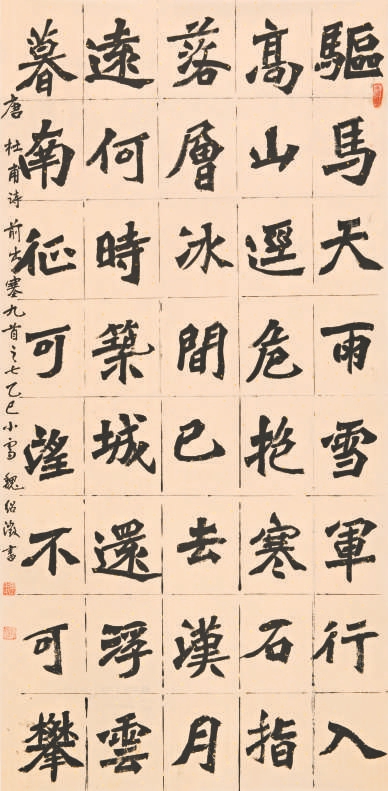 驅馬天雨雪軍行入
高山逕危抱寒石指
落層冰間已去漢月
遠何時築城還浮雲
暮南征可望不可攀
唐 杜甫诗 前出塞九首之七 乙巳小雪 魏绍 书